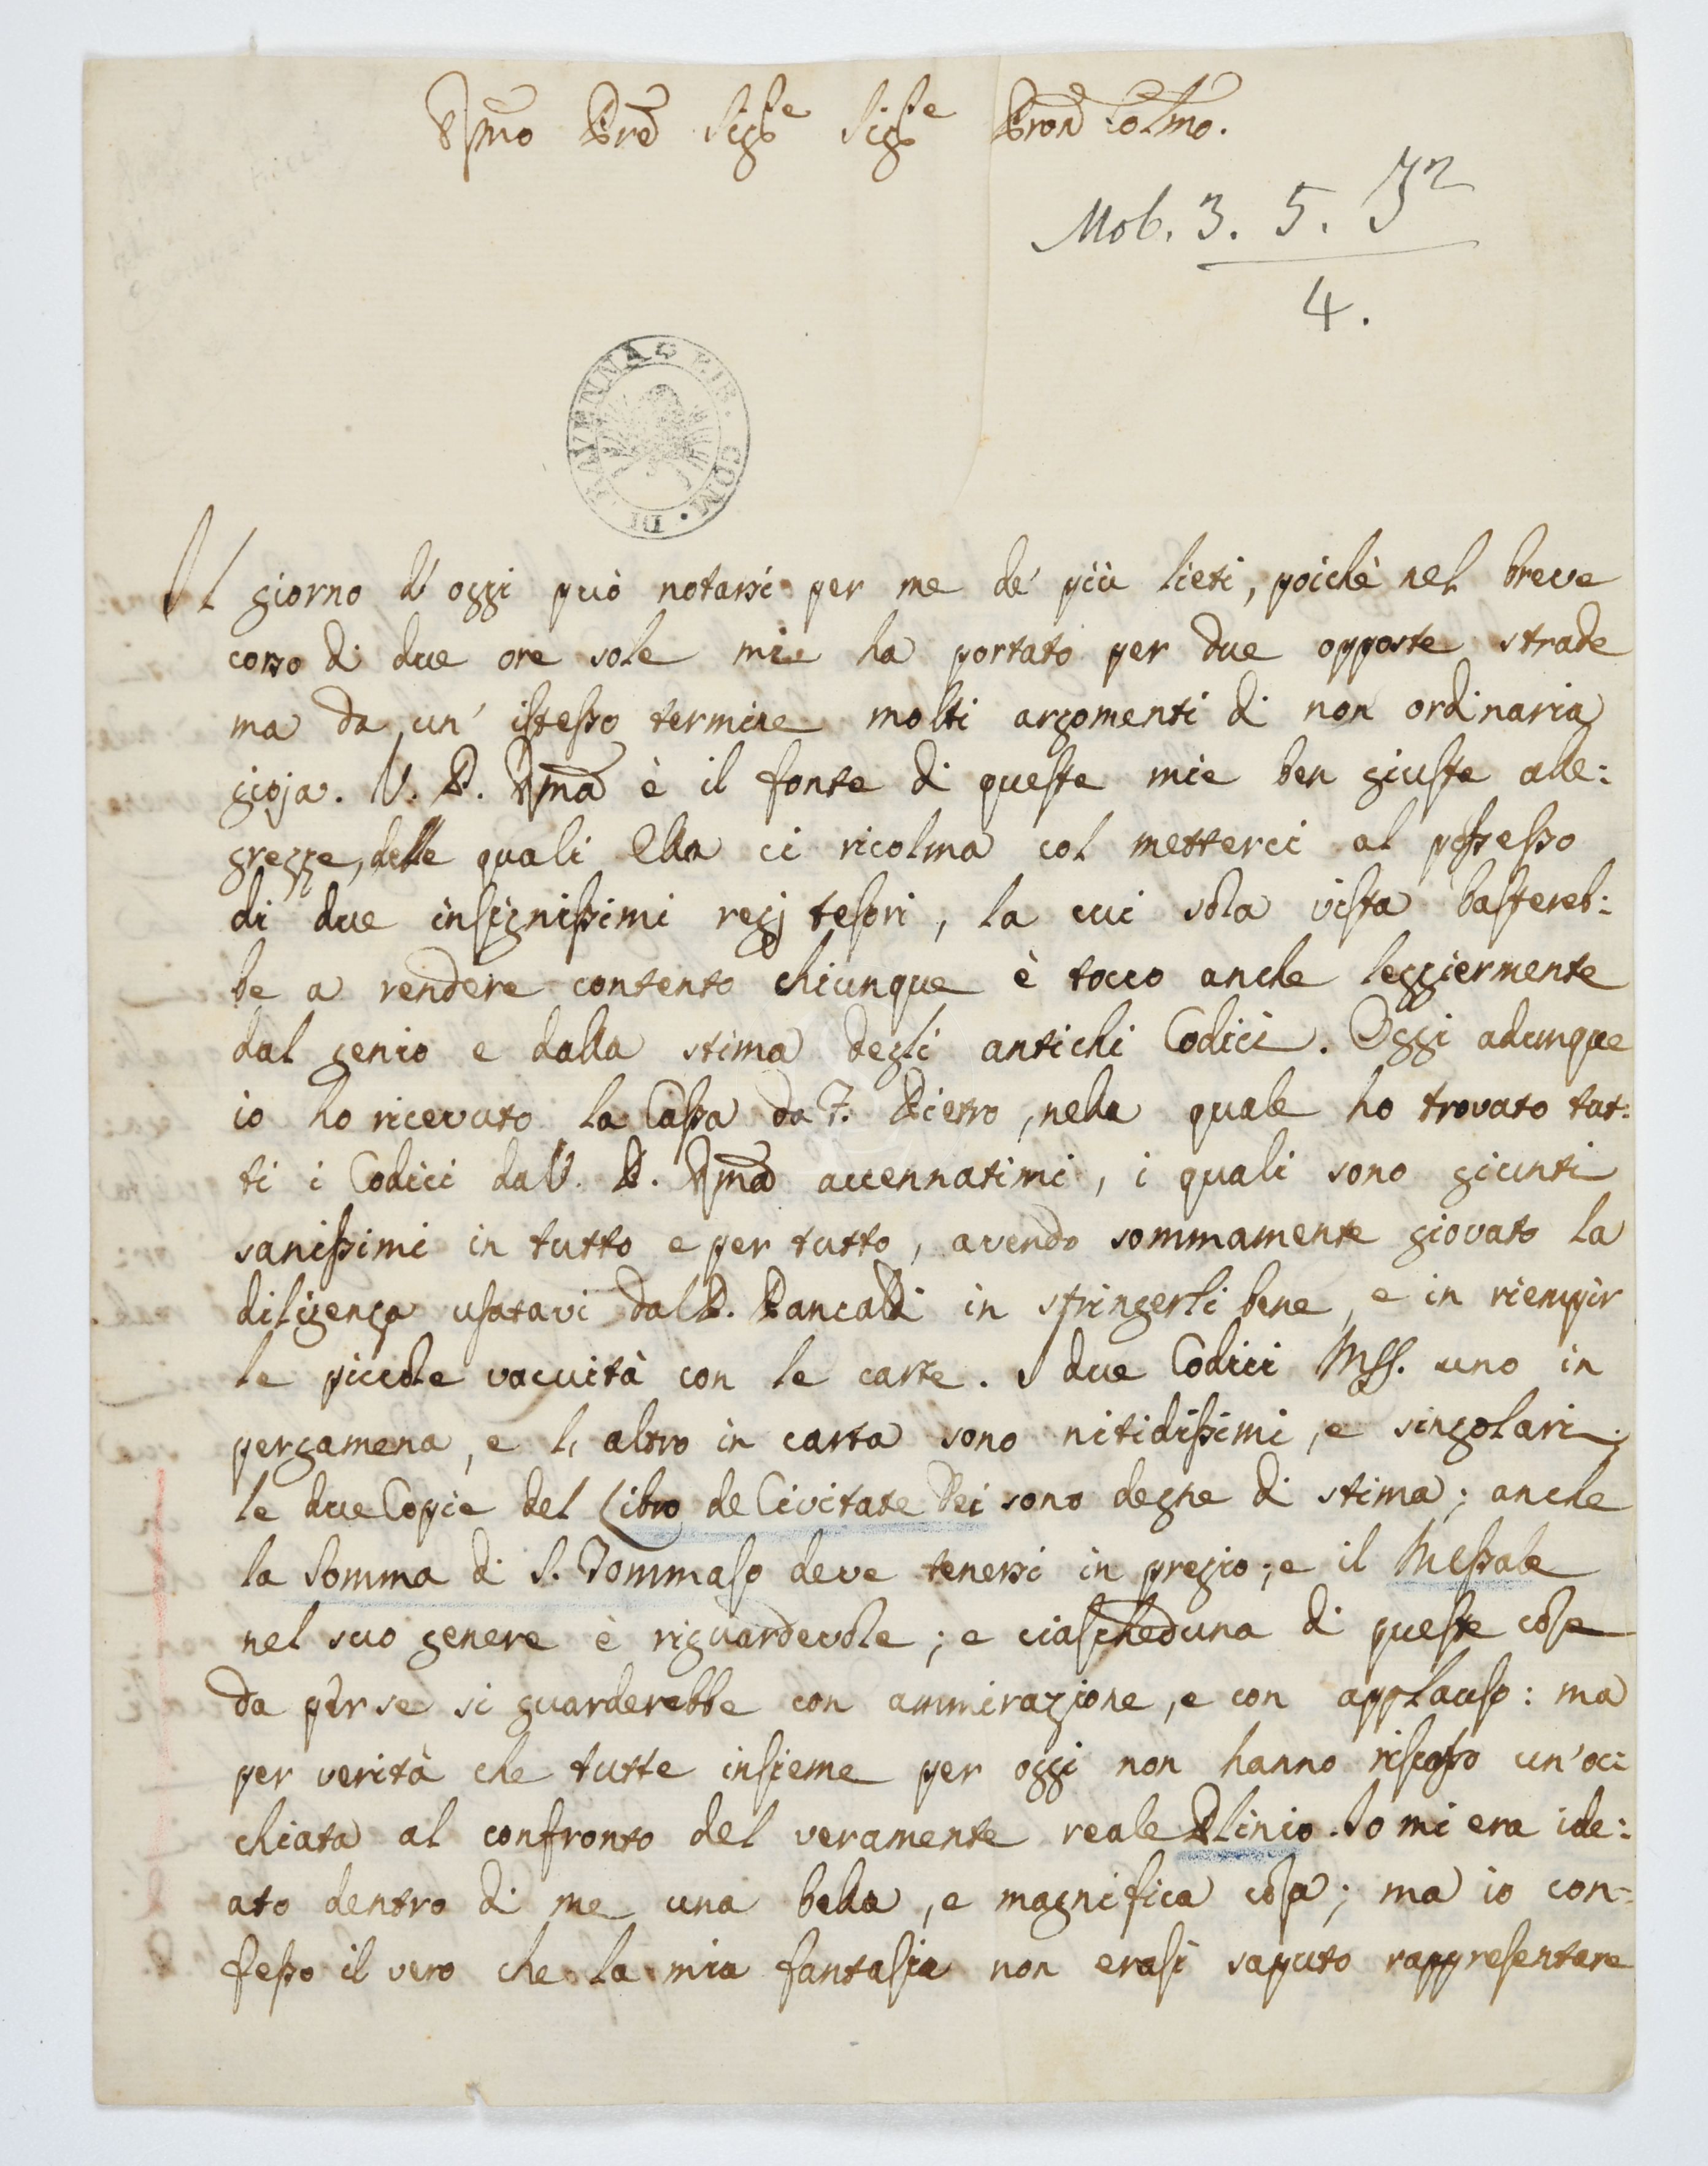 Rmo Pre Sigre Sigre Pron Colmo.
Mob. 3. 5. Jn
4.
BIB. COM. DI RAVENNA
Il giorno d'oggi può notarsi per me de' più lieti, poichè nel breve
corso di due ore sole mie ha portato per due opposte strade
ma da un' istesso termine molti argomenti di non ordinaria
gioja. V. P. Rma è il fonte di queste mie ben giuste alle:
grezze, delle quali Ella ci ricolma col metterci al possesso
di due insignissimi regj tesori, la cui sola vista bastereb:
be a rendere contento chiunque è tocco anche leggiermente
dal genio e dalla stima degli antichi Codici. Oggi adunque
io ho ricevuto la Cassa da S. Pietro, nella quale ho trovato tut:
ti i Codici da V. P. Rma accennatimi, i quali sono giunti
sanissimi in tutto e per tutto, avendo sommamente giovato la
diligenza usatavi dal P. Pancaldi in stringerli bene, e in riempir
le piccole vacuità con le carte. I due Codici Mss. uno in
pergamena, e l' altro in carta sono nitidissimi, e singolari;
le due Copie del Libro de Civitate Dei sono degne di stima; anche
la Somma di S. Tommaso deve tenersi in pregio; e il Messale
nel suo genere è riguardevole; e ciascheduna di queste cose
da per se si guarderebbe con ammirazione, e con applauso: ma
per verità che tutte insieme per oggi non hanno riscosso un'oc:
chiata al confronto del veramente reale Plinio. Io mi era ide:
ato dentro di me una bella, e magnifica cosa; ma io con-
fesso il vero che la mia fantasia non erasi saputo rappresentare